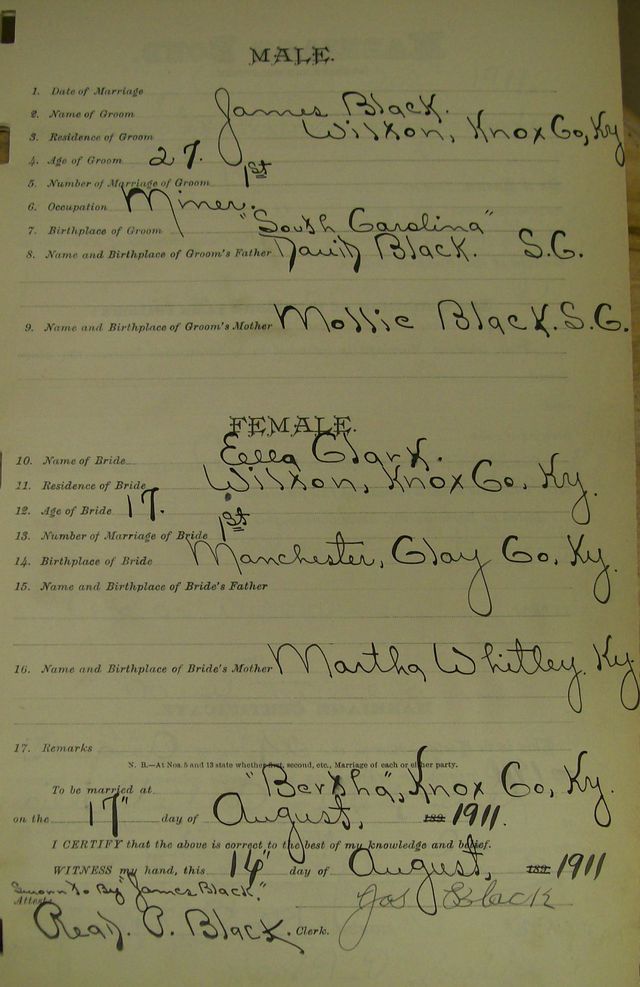 MALE.
1. Date of Marriage
2. Name of Groom James Black.
3. Residence of Groom Wilton, Knox Co, Ky.
4. Age of Groom 27.
5. Number of Marriage of Groom 1st
6. Occupation Miner.
7. Birthplace of Groom "South Carolina"
8. Name and Birthplace of Groom's Father David Black. S.C.
9. Name and Birthplace of Groom's Mother Mollie Black. S.C.
FEMALE.
10. Name of Bride Clark.
11. Residence of Bride Wilton, Knox Co, Ky.
12. Age of Bride 17.
13. Number of Marriage of Bride 1st
14. Birthplace of Bride Manchester, Clay Co, Ky.
15. Name and Birthplace of Bride's Father
16. Name and Birthplace of Bride's Mother Martha Whitley. Ky
17. Remarks
N. B.—At Nos. 5 and 13 state whether first, second, etc., Marriage of each or either party.
To be married at "Bertha", Knox Co, Ky.
on the 17" day of August, 189 1911.
I CERTIFY that the above is correct to the best of my knowledge and belief.
WITNESS my hand, this 14" day of August, 189 1911
Sworn to By "James Black."
Attest: Jas Black
Read. P. Black. Clerk.